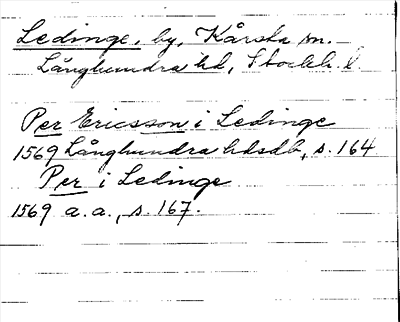 Ledinge, by, Kårsta sn.
Långhundra hd, Stockh. l.
Per Ericsson i Ledinge
1569 Långhundra hdsdb, s. 164
Per i Ledinge
1569 a.a., s. 167.